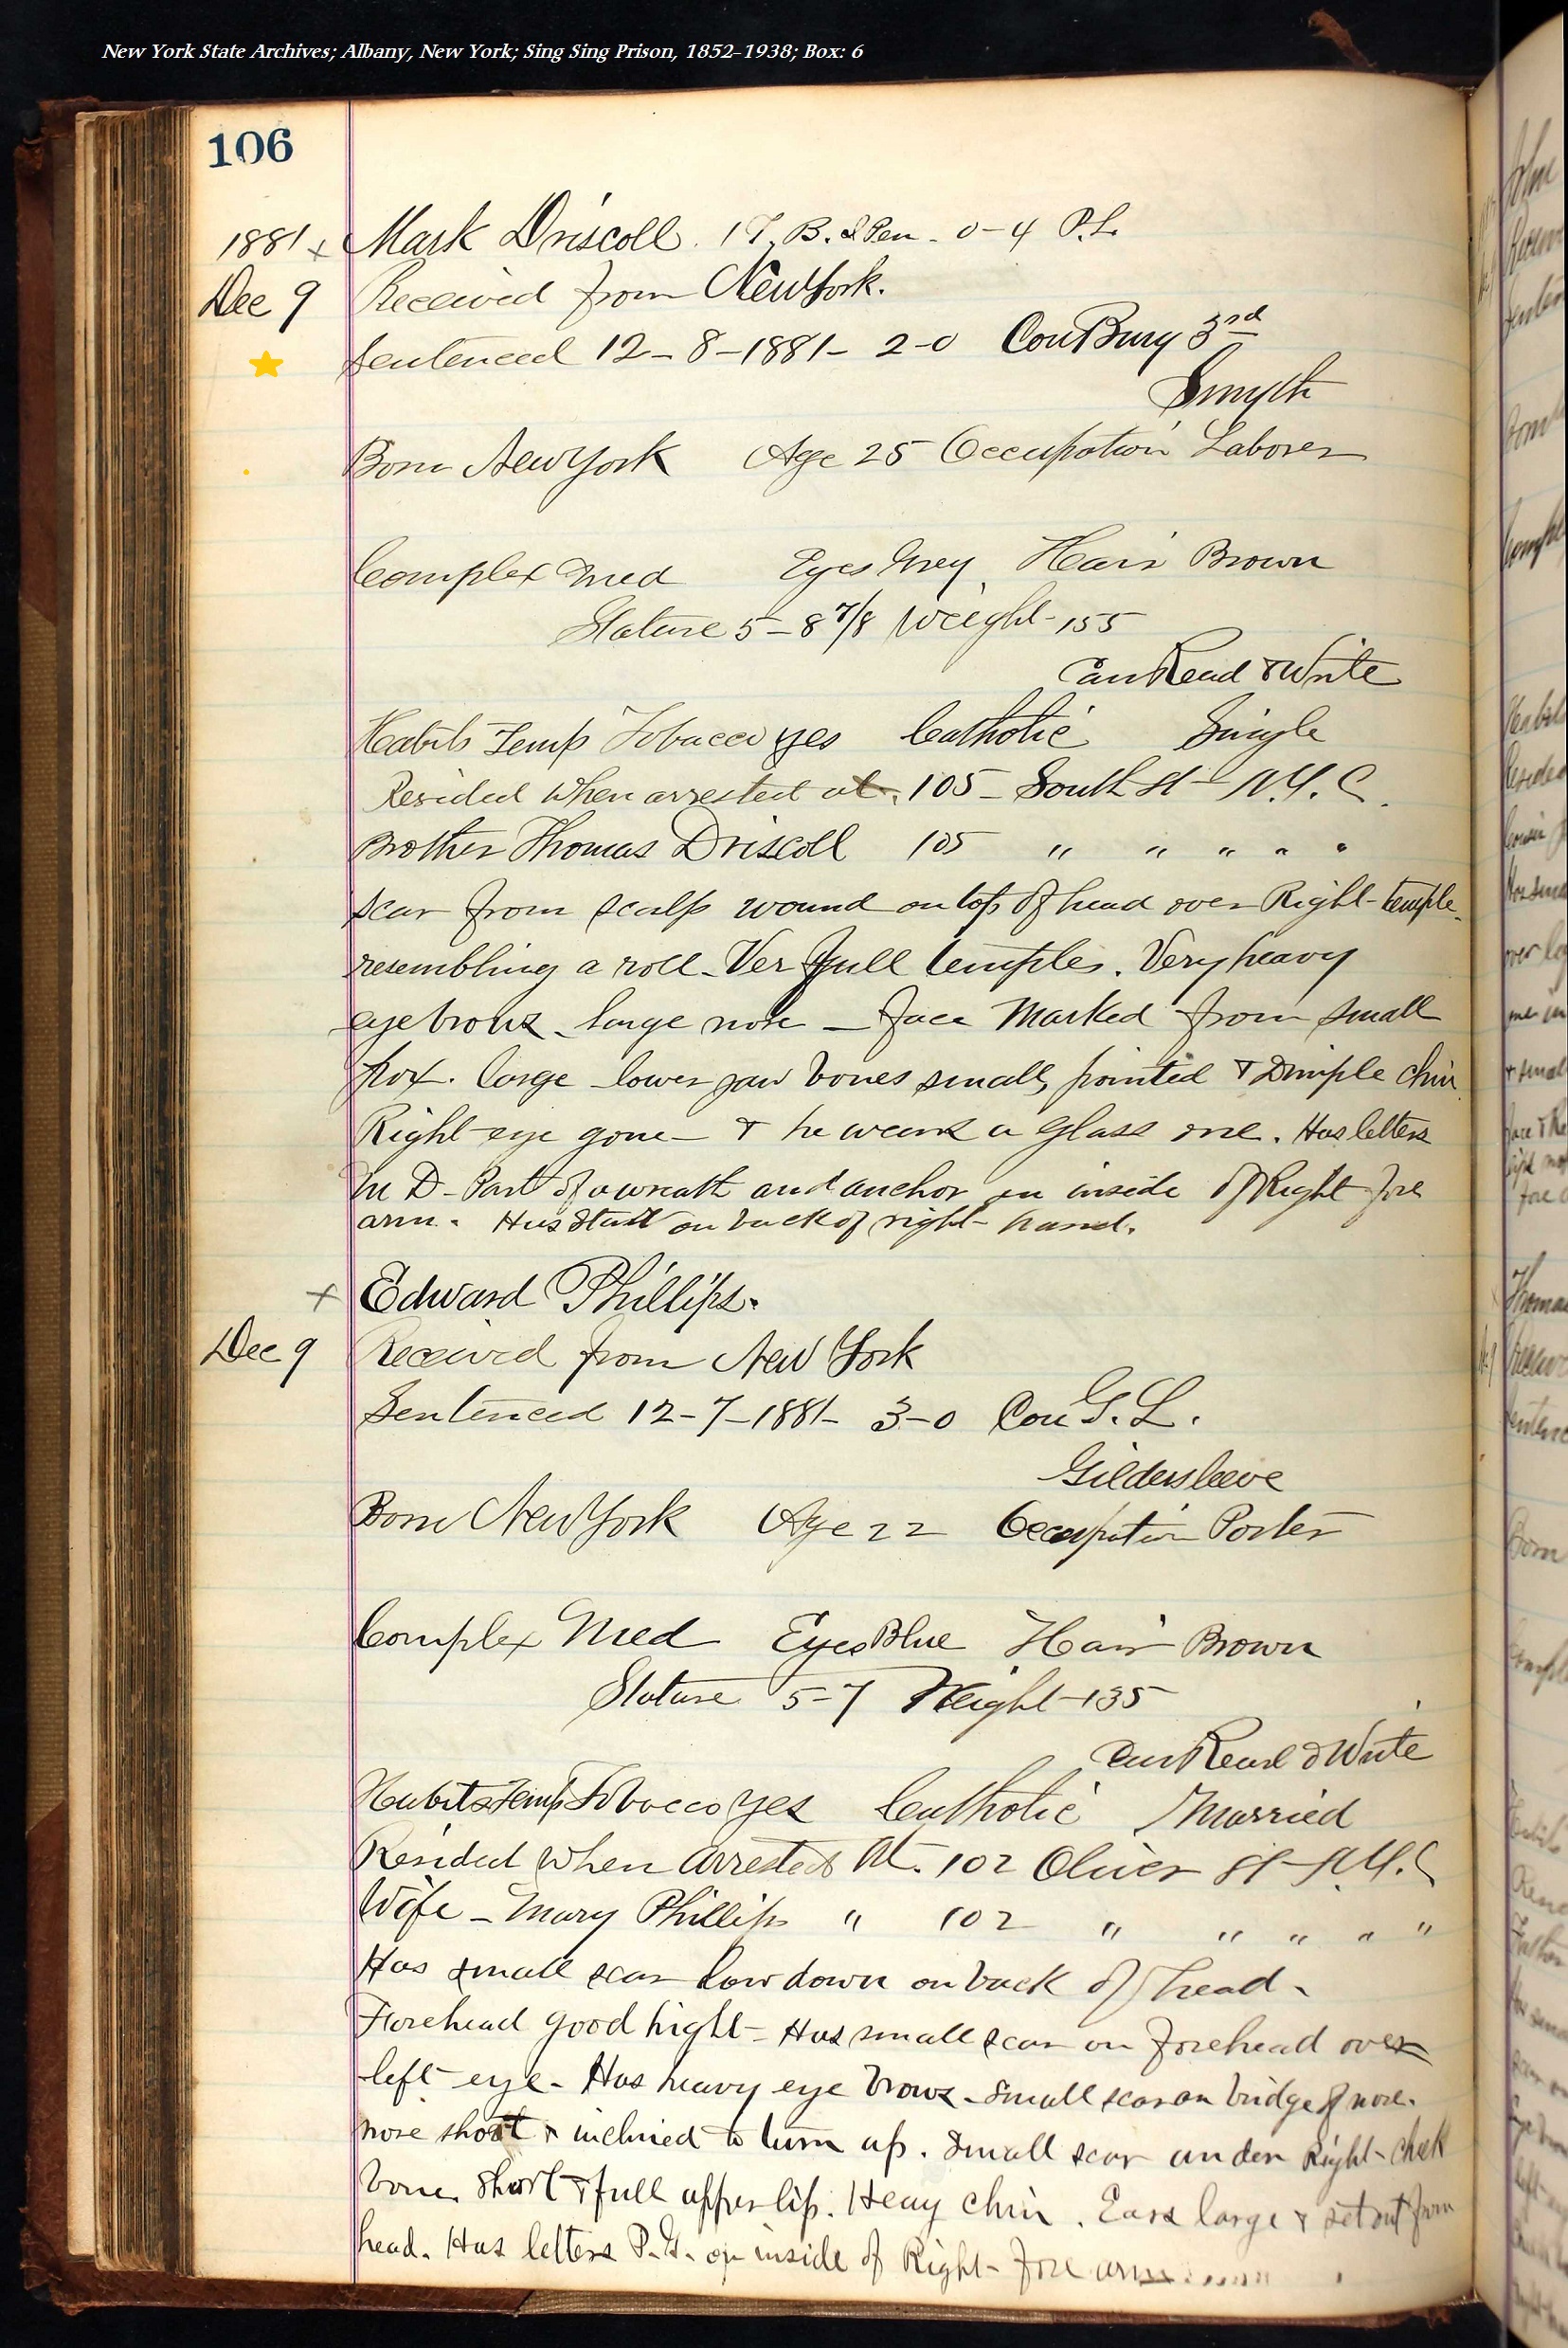 New York State Archives; Albany, New York; Sing Sing Prison, 1852-1938; Box: 6
106
1881 x Mark Driscoll. 1 T. B. I Pen - 0-4 P.L.
Dec 9 Received from New York.
Sentenced 12-8-1881- 2-0 Con Burg 3rd
Smyth
Born New York Age 25 Occupation Laborer
Complex Med Eyes Grey Hair Brown
Stature 5-8 7/8 Weight-155
Can Read & Write
Habits Temp Tobacco yes Catholic Single
Resided when arrested at. 105- South St- N.Y.C.
Brother Thomas Driscoll 105 " " " " "
scar from scalp wound on top of head over Right-temple.
resembling a roll. Ver full temples. Very heavy
eye brows. large nose - face Marked from small
pox. large lower jaw bones small, pointed & Dimple chin
Right-eye gone- & he wears a glass one. Has letters
M D- Part of a wreath and anchor on inside of Right fore
arm. Has Star on back of right- hand.
x Edward Phillips.
Dec 9 Received from New York
Sentenced 12-7-1881- 3-0 Con G. L.
Gildersleeve
Born New York Age 22 Occupation Porter
Complex Med Eyes Blue Hair Brown
Stature 5-7 Weight-135
Can Read & Write
Habits Temp Tobacco yes Catholic Married
Resided when arrested At. 102 Oliver St- N.Y.C
Wife - Mary Phillips " 102 " " " " "
Has small scar low down on back of head.
Forehead good hight- Has small scar on forehead over
left-eye- Has heavy eye brows. small scar on bridge of nose.
nose short & inclined to turn up. Small scar under Right-cheek
bone. Short & full upper lip. Heavy chin. Ears large & set out from
head. Has letters P. G. on inside of Right- fore arm